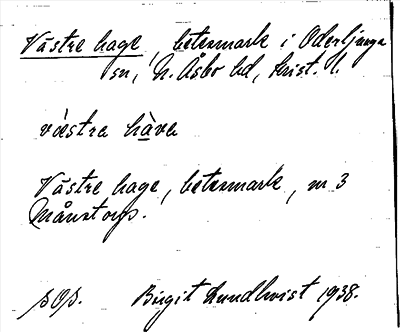 Västre hage, betesmark i Oderljunga
sn, N. Åsbo hd, Krist. l.
västra hàva
Västre hage, betesmark, nr 3
Månstorp.
Birgit Lundkvist 1938.